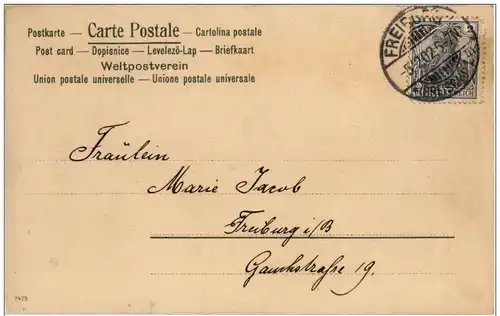 Postkarte — Carte Postale — Cartolina postale
Post card — Dopisnice — Levelező-Lap — Briefkaart
Weltpostverein
Union postale universelle — Unione postale universale
Fräulein
Marie Jacob
Freiburg i/B
Gauchstraße 19.
7475